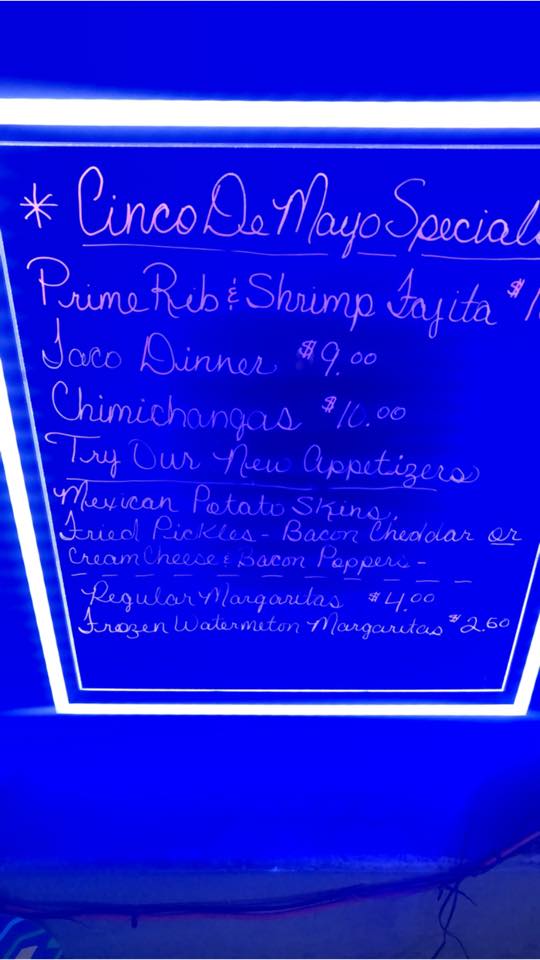 * Cinco De Mayo Special
Prime Rib & Shrimp Fajita $1
Taco Dinner $9.00
Chimichangas $10.00
Try Our New Appetizers
Mexican Potato Skins,
Fried Pickles - Bacon Cheddar or
Cream Cheese & Bacon Poppers -
Regular Margaritas $4.00
Frozen Watermelon Margaritas $2.60